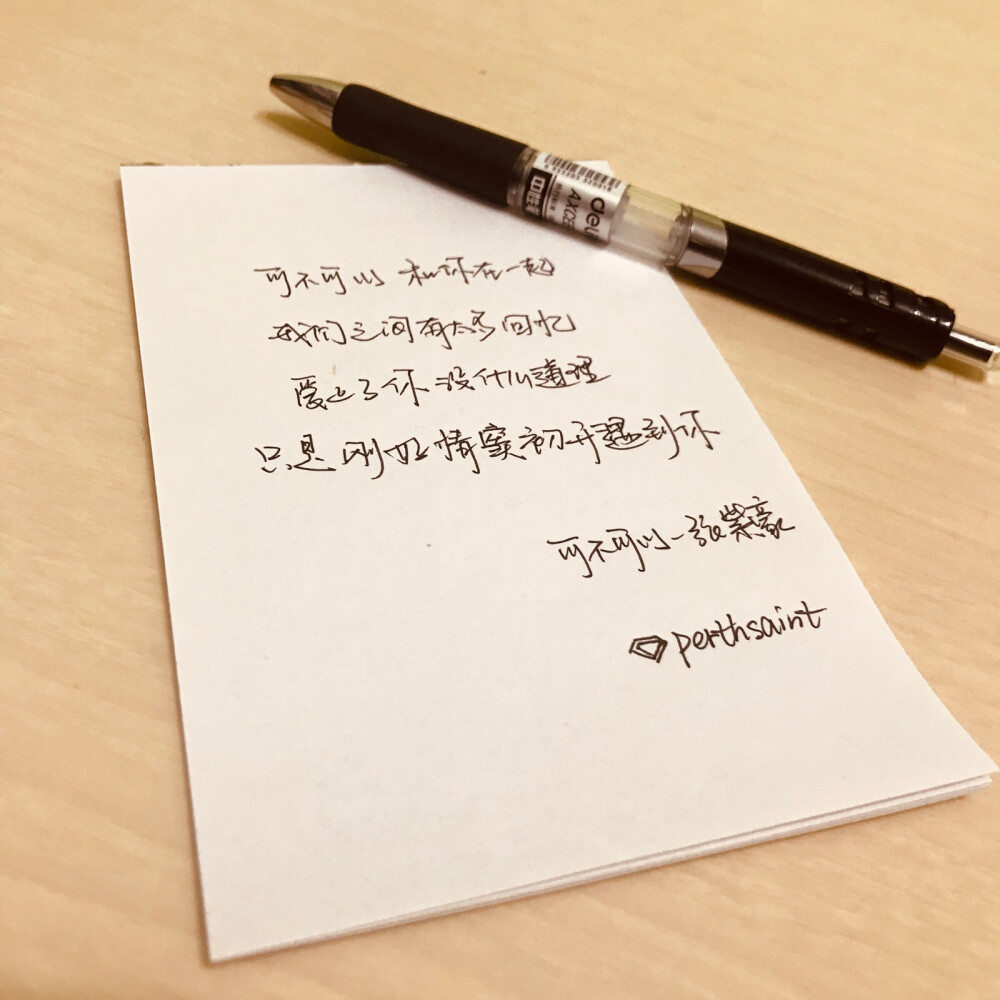 deli
可不可以 和你在一起
我们之间有太多回忆
爱上了你 没什么道理
只是刚好情窦初开遇到你
可不可以-张紫豪
perthsaint